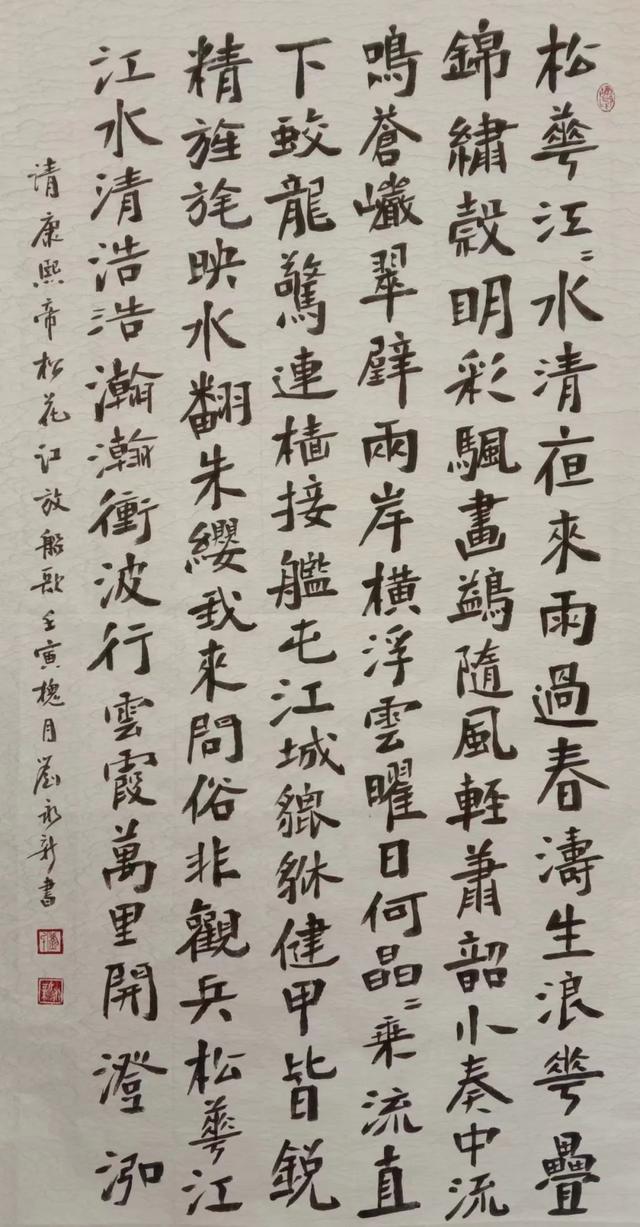 松華江〻水清夜來雨過春濤生浪華疊
錦繡縠明彩颿畫鷁隨風輕蕭韶小奏中流
鳴蒼翠壁兩岸橫浮雲曜日何晶〻乘流直
下蛟龍驚連檣接艦屯江城貔貅健甲皆銳
精旌旄映水翻朱纓我來問俗非觀兵松華江
江水清浩浩瀚瀚衝波行雲霞萬里開澄泓
清康熙帝松花江放船歌壬寅槐月劉永新書